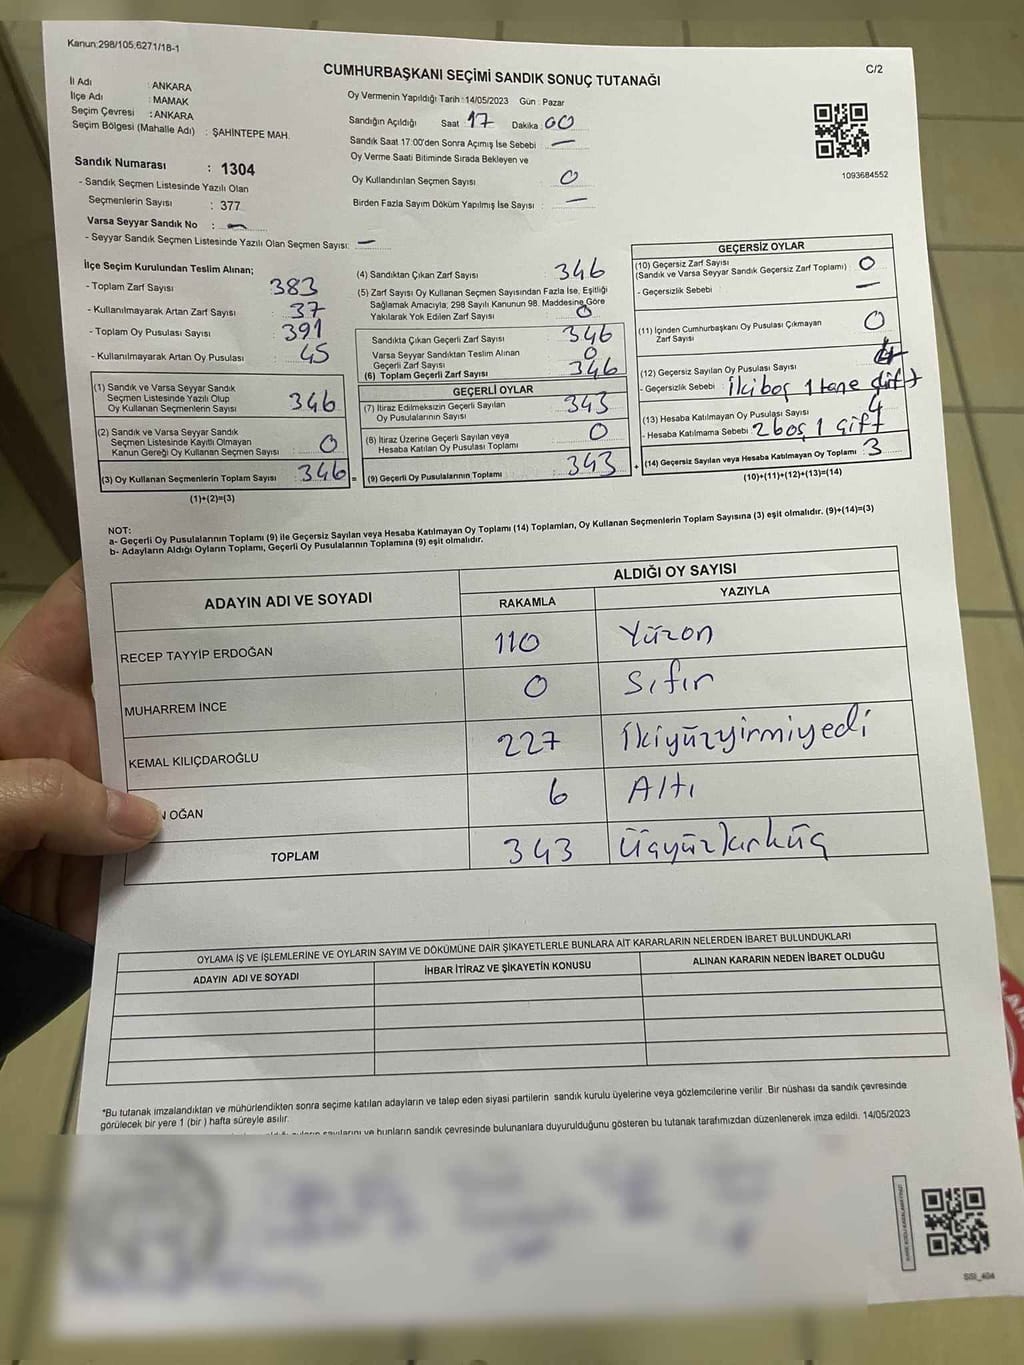 Kanun:298/105,6271/18-1
C/2
CUMHURBAŞKANI SEÇİMİ SANDIK SONUÇ TUTANAĞI
İl Adı : ANKARA
İlçe Adı : MAMAK
Seçim Çevresi : ANKARA
Seçim Bölgesi (Mahalle Adı) : ŞAHİNTEPE MAH.
Oy Vermenin Yapıldığı Tarih :14/05/2023 Gün : Pazar
Sandığın Açıldığı Saat 17 Dakika : 00
Sandık Saat 17:00'den Sonra Açımış İse Sebebi : —
Oy Verme Saati Bitiminde Sırada Bekleyen ve
Oy Kullandırılan Seçmen Sayısı 0
Birden Fazla Sayım Döküm Yapılmış İse Sayısı : —
1093684552
Sandık Numarası : 1304
- Sandık Seçmen Listesinde Yazılı Olan
Seçmenlerin Sayısı : 377
Varsa Seyyar Sandık No : —
- Seyyar Sandık Seçmen Listesinde Yazılı Olan Seçmen Sayısı: —
İlçe Seçim Kurulundan Teslim Alınan;
- Toplam Zarf Sayısı 383
- Kullanılmayarak Artan Zarf Sayısı : 37
- Toplam Oy Pusulası Sayısı 391
- Kullanılmayarak Artan Oy Pusulası : 45
(1) Sandık ve Varsa Seyyar Sandık
Seçmen Listesinde Yazılı Olup
Oy Kullanan Seçmenlerin Sayısı 346
(2) Sandık ve Varsa Seyyar Sandık
Seçmen Listesinde Kayıtlı Olmayan
Kanun Gereği Oy Kullanan Seçmen Sayısı : 0
(3) Oy Kullanan Seçmenlerin Toplam Sayısı : 346 =
(1)+(2)=(3)
(4) Sandıktan Çıkan Zarf Sayısı 346
(5) Zarf Sayısı Oy Kullanan Seçmen Sayısından Fazla İse, Eşitliği
Sağlamak Amacıyla; 298 Sayılı Kanunun 98. Maddesine Göre
Yakılarak Yok Edilen Zarf Sayısı : 0
Sandıkta Çıkan Geçerli Zarf Sayısı : 346
Varsa Seyyar Sandıktan Teslim Alınan
Geçerli Zarf Sayısı : 0
(6) Toplam Geçerli Zarf Sayısı : 346
GEÇERLİ OYLAR
(7) İtiraz Edilmeksizin Geçerli Sayılan
Oy Pusulalarının Sayısı : 343
(8) İtiraz Üzerine Geçerli Sayılan veya
Hesaba Katılan Oy Pusulası Toplamı : 0
(9) Geçerli Oy Pusulalarının Toplamı : 343 +
GEÇERSİZ OYLAR
(10) Geçersiz Zarf Sayısı
(Sandık ve Varsa Seyyar Sandık Geçersiz Zarf Toplamı) : 0
- Geçersizlik Sebebi : —
(11) İçinden Cumhurbaşkanı Oy Pusulası Çıkmayan
Zarf Sayısı : 0
(12) Geçersiz Sayılan Oy Pusulası Sayısı :
- Geçersizlik Sebebi : İki boş 1 tane çift
(13) Hesaba Katılmayan Oy Pusulası Sayısı : 4
- Hesaba Katılmama Sebebi : 2 boş 1 çift
(14) Geçersiz Sayılan veya Hesaba Katılmayan Oy Toplamı : 3
(10)+(11)+(12)+(13)=(14)
NOT:
a- Geçerli Oy Pusulalarının Toplamı (9) ile Geçersiz Sayılan veya Hesaba Katılmayan Oy Toplamı (14) Toplamları, Oy Kullanan Seçmenlerin Toplam Sayısına (3) eşit olmalıdır. (9)+(14)=(3)
b- Adayların Aldığı Oyların Toplamı, Geçerli Oy Pusulalarının Toplamına (9) eşit olmalıdır.
ADAYIN ADI VE SOYADI
ALDIĞI OY SAYISI
RAKAMLA YAZIYLA
RECEP TAYYİP ERDOĞAN 110 Yüzon
MUHARREM İNCE 0 Sıfır
KEMAL KILIÇDAROĞLU 227 İkiyüzyirmiyedi
N OĞAN 6 Altı
TOPLAM 343 Üçyüzkırküç
OYLAMA İŞ VE İŞLEMLERİNE VE OYLARIN SAYIM VE DÖKÜMÜNE DAİR ŞİKAYETLERLE BUNLARA AİT KARARLARIN NELERDEN İBARET BULUNDUKLARI
ADAYIN ADI VE SOYADI İHBAR İTİRAZ VE ŞİKAYETİN KONUSU ALINAN KARARIN NEDEN İBARET OLDUĞU
*Bu tutanak imzalandıktan ve mühürlendikten sonra seçime katılan adayların ve talep eden siyasi partilerin sandık kurulu üyelerine veya gözlemcilerine verilir. Bir nüshası da sandık çevresinde
görülecek bir yere 1 (bir ) hafta süreyle asılır.
sayılarını ve bunların sandık çevresinde bulunanlara duyurulduğunu gösteren bu tutanak tarafımızdan düzenlenerek imza edildi. 14/05/2023